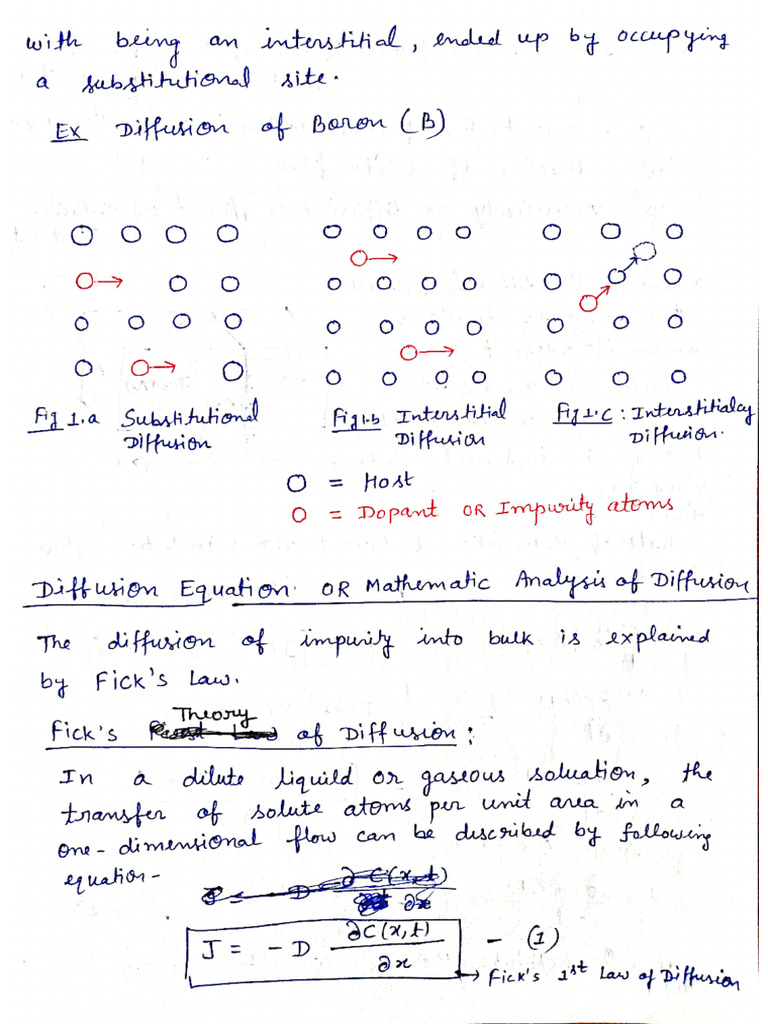 with being an interstitial, ended up by occupying
a substitutional site.
Ex Diffusion of Boron (B)
Fig 1.a Substitutional
Diffusion
Fig 1.b Interstitial
Diffusion
Fig 1.c : Interstitialcy
Diffusion.
O = Host
O = Dopant OR Impurity atoms
Diffusion Equation OR Mathematic Analysis of Diffusion
The diffusion of impurity into bulk is explained
by Fick's Law.
Fick's Theory of Diffusion :
In a dilute liquid or gaseous soluation, the
transfer of solute atoms per unit area in a
one-dimensional flow can be described by following
equation-
J = - D ∂C(x,t)/∂x - (1)
→ Fick's 1st Law of Diffusion